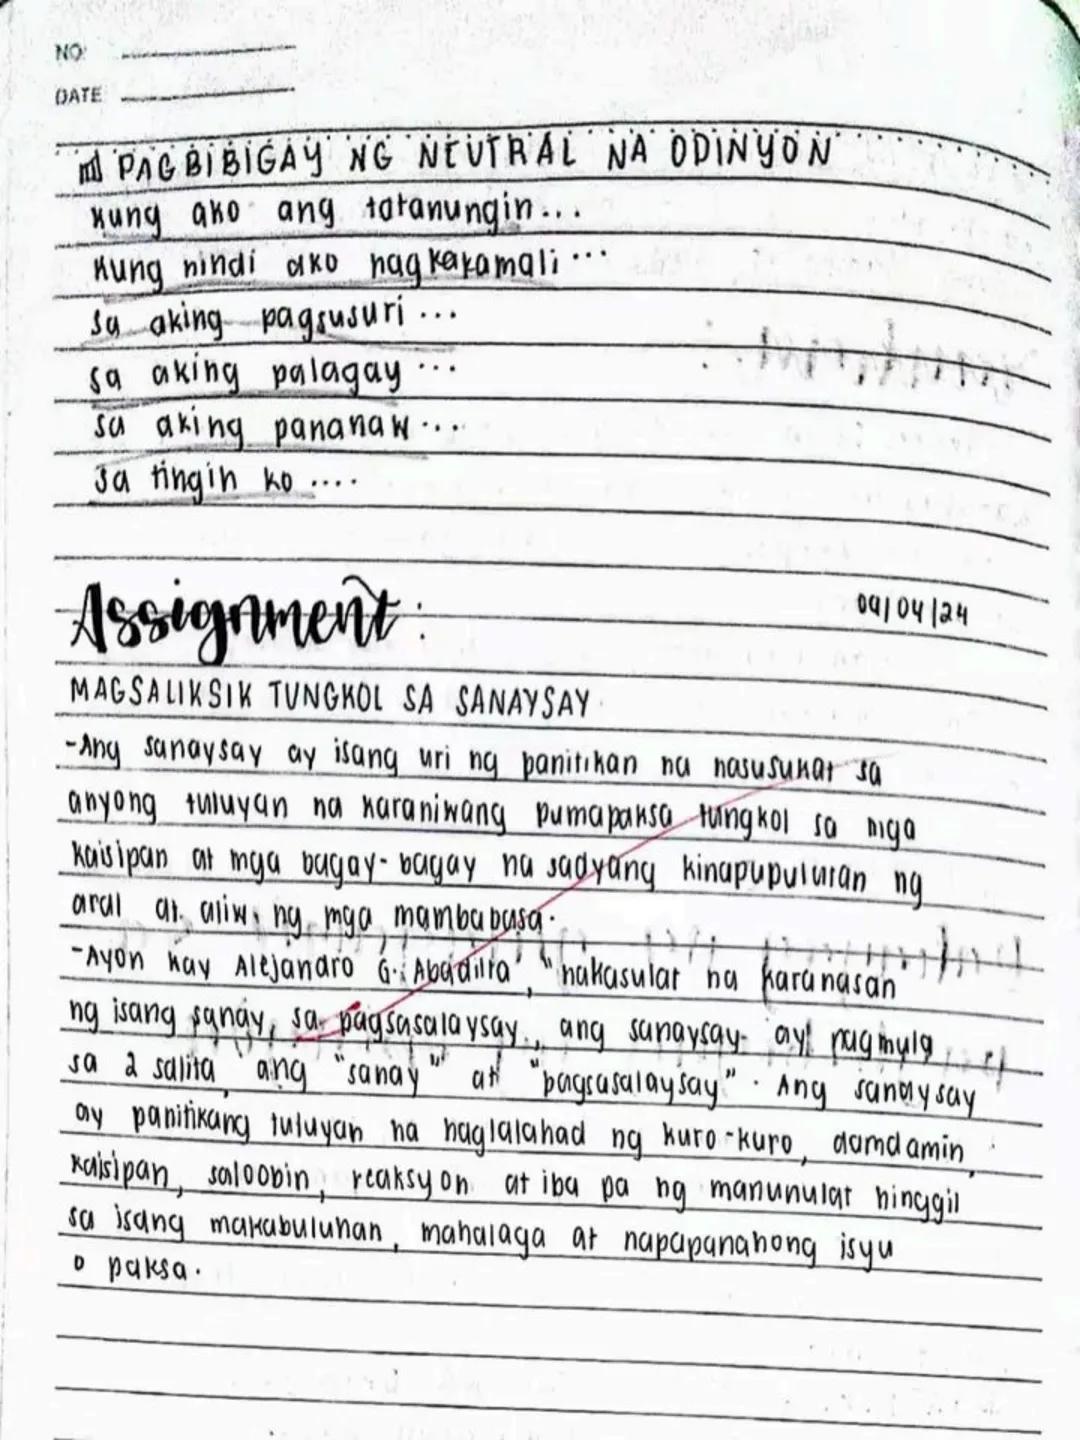 NO:
DATE
PAGBIBIGAY NG NEUTRAL NA ODINYON
kung ako ang tatanungin...
kung hindi ako nagkakamali...
sa aking pagsusuri...
sa aking palagay...
sa aking pananaw...
sa tingin ko....
Assignment:
09/04/24
MAGSALIKSIK TUNGKOL SA SANAYSAY
-Ang sanaysay ay isang uri ng panitikan na nasusukat sa
anyong tuluyan na karaniwang pumapaksa tungkol sa mga
kaisipan at mga bagay-bagay na sadyang kinapupuluran ng
aral at aliw ng mga mambabasa.
-Ayon kay Alejandro G. Abadilla, "nakasulat na karanasan
ng isang sanay sa pagsasalaysay, ang sanaysay ay nagmula
sa 2 salita ang "sanay" at "pagsasalaysay". Ang sanaysay
ay panitikang tuluyan na naglalahad ng kuro-kuro, damdamin,
kaisipan, saloobin, reaksyon at iba pa ng manunulat hinggil
sa isang makabuluhan, mahalaga at napapanahong isyu
o paksa.